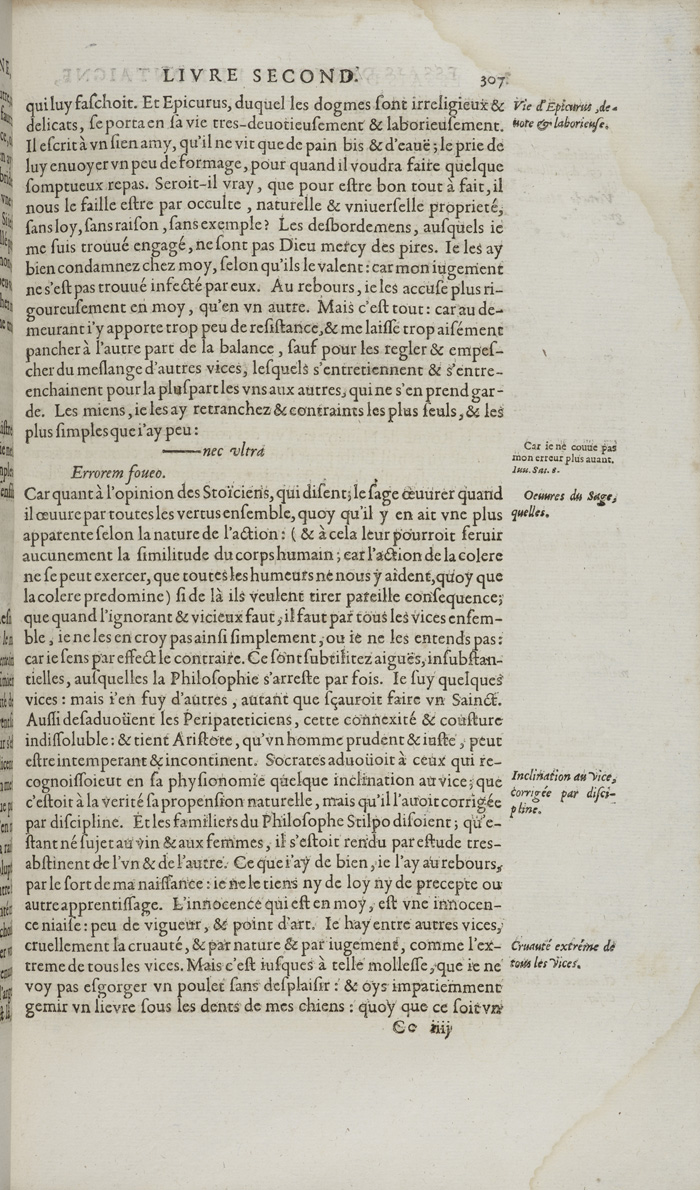 LIVRE SECOND. 307
qui luy faſchoit. Et Epicurus, duquel les dogmes ſont irreligieux &
delicats, ſe porta en ſa vie tres-deuotieuſement & laborieuſement.
Il eſcrit à vn ſien amy, qu'il ne vit que de pain bis & d'eauë; le prie de
luy enuoyer vn peu de formage, pour quand il voudra faire quelque
ſomptueux repas. Seroit-il vray, que pour eſtre bon tout à fait, il
nous le faille eſtre par occulte, naturelle & vniuerſelle proprieté,
ſans loy, ſans raiſon, ſans exemple? Les desbordemens, auſquels ie
me ſuis trouué engagé, ne ſont pas Dieu mercy des pires. Ie les ay
bien condamnez chez moy, ſelon qu'ils le valent: car mon iugement
ne s'eſt pas trouué infecté par eux. Au rebours, ie les accuſe plus ri-
goureuſement en moy, qu'en vn autre. Mais c'eſt tout: car au de-
meurant i'y apporte trop peu de reſiſtance, & me laiſſe trop aiſément
pancher à l'autre part de la balance, ſauf pour les regler & empeſ-
cher du meſlange d'autres vices, leſquels s'entretiennent & s'entre-
enchainent pour la pluſpart les vns aux autres, qui ne s'en prend gar-
de. Les miens, ie les ay retranchez & contraints les plus ſeuls, & les
plus ſimples que i'ay peu:
—— nec vltrà
Errorem foueo.
Car quant à l'opinion des Stoïciens, qui diſent; le ſage œuurer quand
il œuure par toutes les vertus enſemble, quoy qu'il y en ait vne plus
apparente ſelon la nature de l'action: (& à cela leur pourroit ſeruir
aucunement la ſimilitude du corps humain; car l'action de la colere
ne ſe peut exercer, que toutes les humeurs ne nous y aident, quoy que
la colere predomine) ſi de là ils veulent tirer pareille conſequence;
que quand l'ignorant & vicieux faut, il faut par tous les vices enſem-
ble, ie ne les en croy pas ainſi ſimplement, ou ie ne les entends pas:
car ie ſens par effect le contraire. Ce ſont ſubtilitez aiguës, inſubſtan-
tielles, auſquelles la Philoſophie s'arreſte par fois. Ie ſuy quelques
vices: mais i'en fuy d'autres, autant que ſçauroit faire vn Sainct.
Auſſi deſaduoüent les Peripateticiens, cette connexité & couſture
indiſſoluble: & tient Ariſtote, qu'vn homme prudent & iuſte, peut
eſtre intemperant & incontinent. Socrates aduoüoit à ceux qui re-
cognoiſſoieut en ſa phyſionomie quelque inclination au vice; que
c'eſtoit à la verité ſa propenſion naturelle, mais qu'il l'auoit corrigée
par diſcipline. Et les familiers du Philoſophe Stilpo diſoient; qu'e-
ſtant né ſujet au vin & aux femmes, il s'eſtoit rendu par eſtude tres-
abſtinent de l'vn & de l'autre. Ce que i'ay de bien, ie l'ay au rebours,
par le ſort de ma naiſſance: ie ne le tiens ny de loy ny de precepte ou
autre apprentiſſage. L'innocence qui eſt en moy, eſt vne innocen-
ce niaiſe: peu de vigueur, & point d'art. Ie hay entre autres vices,
cruellement la cruauté, & par nature & par iugement, comme l'ex-
treme de tous les vices. Mais c'eſt iuſques à telle molleſſe, que ie ne
voy pas eſgorger vn poulet ſans deſplaiſir: & oys impatiemment
gemir vn lievre ſous les dents de mes chiens: quoy que ce ſoit vn
Cc iiij
Vie d'Epicurus, de-
uote & laborieuſe.
Car ie ne couue pas
mon erreur plus auant.
Iuu. Sat. 8.
Oeuures du Sage,
quelles.
Inclination au vice,
corrigée par diſci-
pline.
Cruauté extréme de
tous les vices.